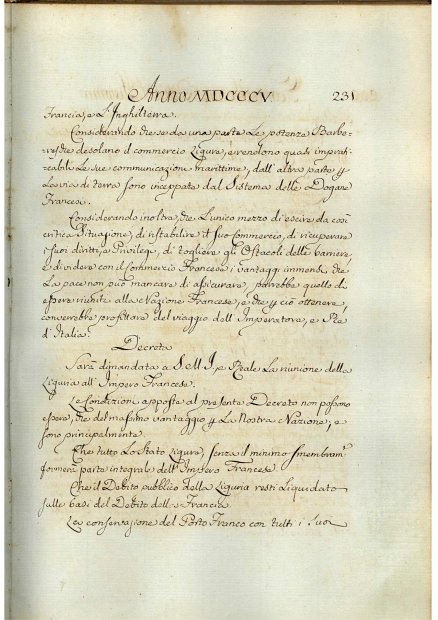 Anno MDCCCV 231
Francia, e L'Inghilterra.
Considerando che se da una parte Le potenze Barbe=
resche desolano il commercio Ligure, e rendono quasi imprati=
cabili Le sue communicazioni marittime, dall'altra parte p
La via di terra sono inceppate dal Sistema delle Dogane
Francesi.
Considerando inoltre, che L'unico mezzo di escire da così
critica Situazione, di ristabilire il suo Commercio, di ricuperare
i suoi diritti, e Privilegi, di togliere gli Ostacoli delle barriere,
e di videre con il Commercio Francese i vantaggi immensi, che
La pace non può mancare di assicurare, potrebbe quello di
essere riunita alla Nazione Francese, e che p ciò ottenere,
converebbe profittare del viaggio dell'Imperatore, e Rè
d'Italia.
Decreta
Sarà dimandata a S. M. I. e Reale La riunione della
Liguria all'Impero Francese.
Le Condizioni apposte al presente Decreto non possono
essere, che del massimo vantaggio p La Nostra Nazione, e
sono principalmente
Che tutto Lo Stato Ligure, senza il minimo smembram.
formerà parte integrale dell'Impero Francese
Che il Debito pubblico della Liguria resti Liquidato
sulle basi del Debito della Francia.
La conservazione del Porto Franco con tutti i suoi